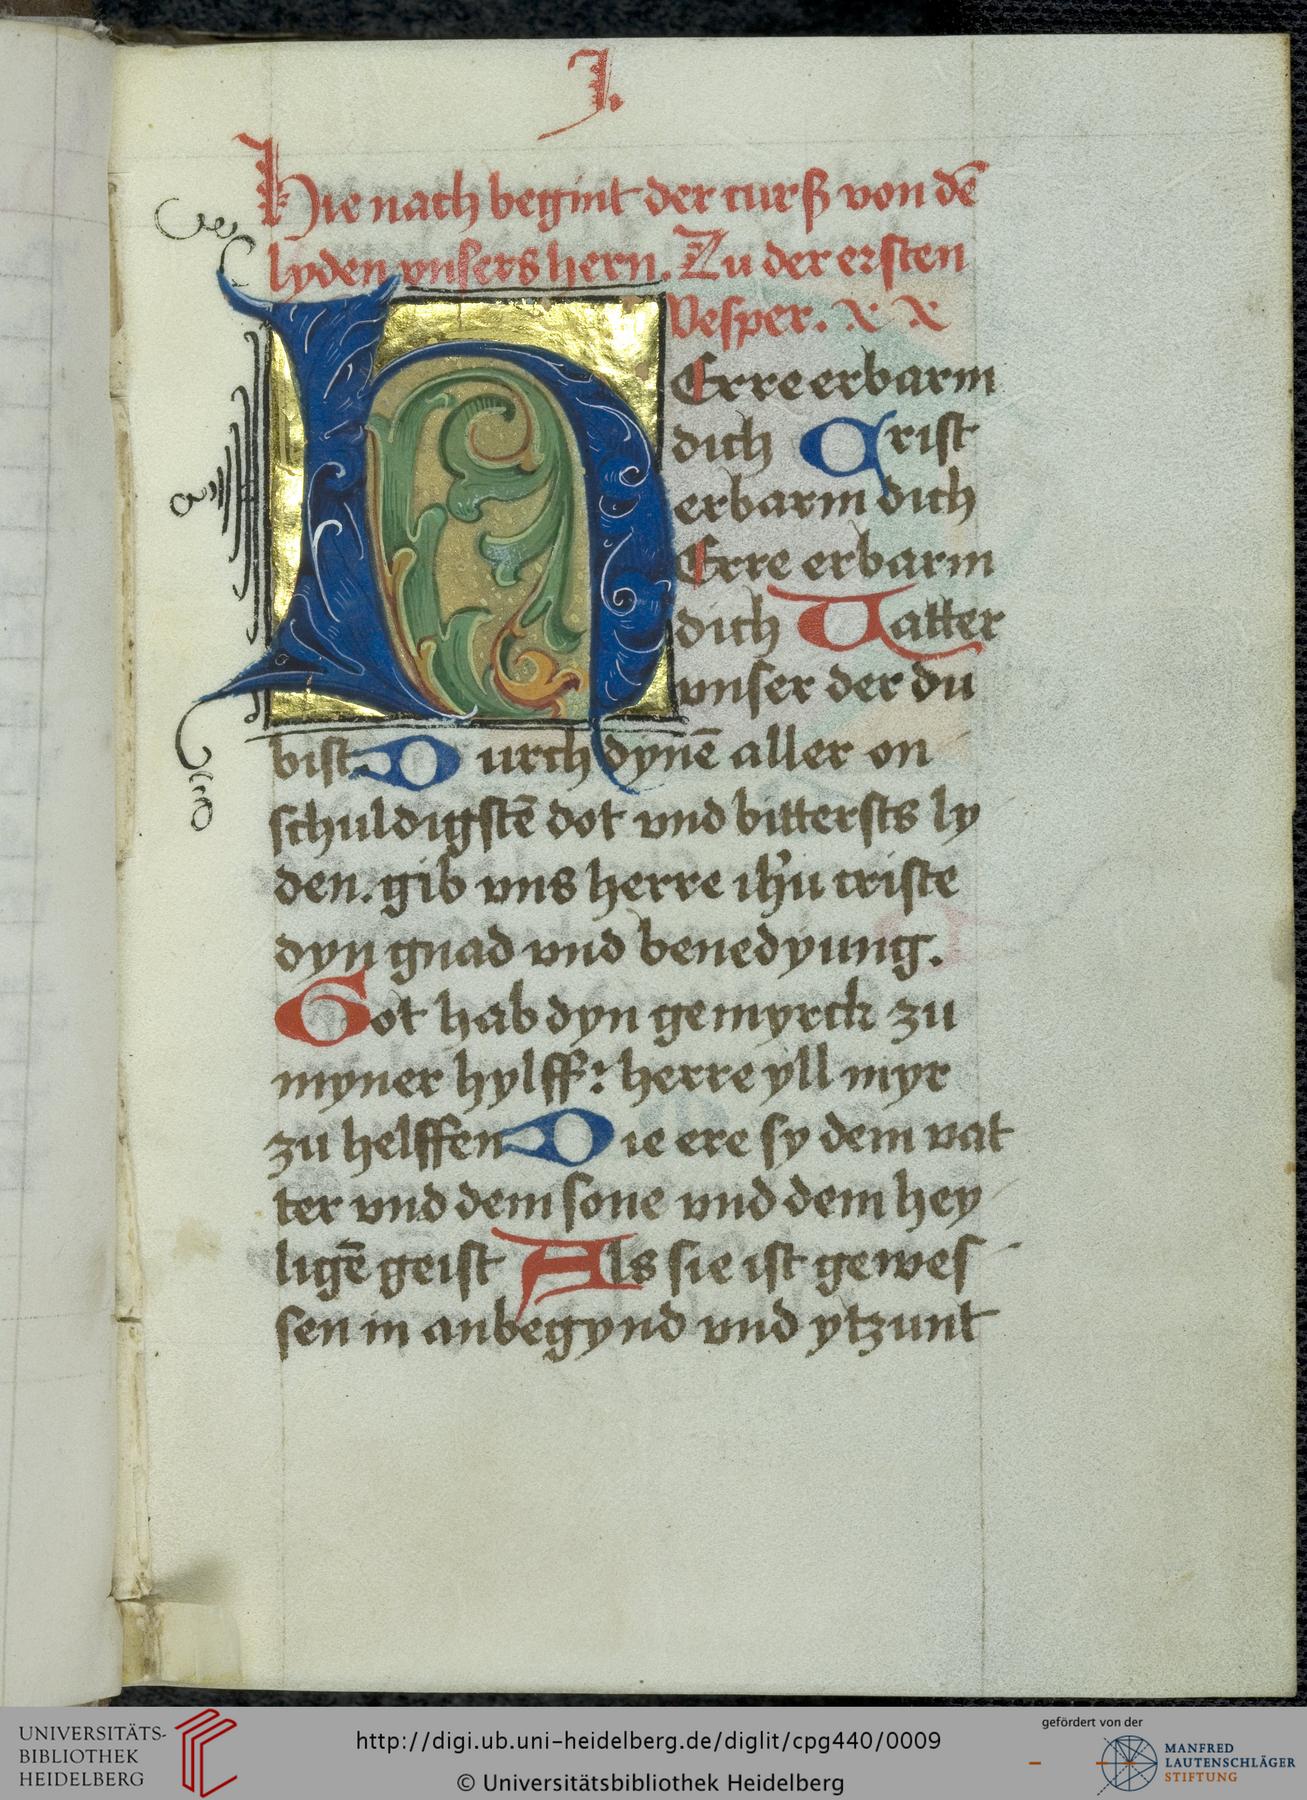 I.
Hie nach begint der curß von dē
lyden vnsers hern. Zu der ersten
Vesper. x x
HErre erbarm
dich Crist
erbarm dich
Erre erbarm
dich Vatter
vnser der du
bist Durch dynē aller on
schuldigstē dot vnd bittersts ly
den. gib vns herre ih'u criste
dyn gnad vnd benedyung.
Got hab dyn gemyrck zu
myner hylff: herre yll myr
zu helffen Die ere sy dem vat
ter vnd dem sone vnd dem hey
ligē geist Als sie ist gewes
sen in anbegynd vnd ytzunt
UNIVERSITÄTS-
BIBLIOTHEK
HEIDELBERG
http://digi.ub.uni-heidelberg.de/diglit/cpg440/0009
© Universitätsbibliothek Heidelberg
gefördert von der
MANFRED
LAUTENSCHLÄGER
STIFTUNG